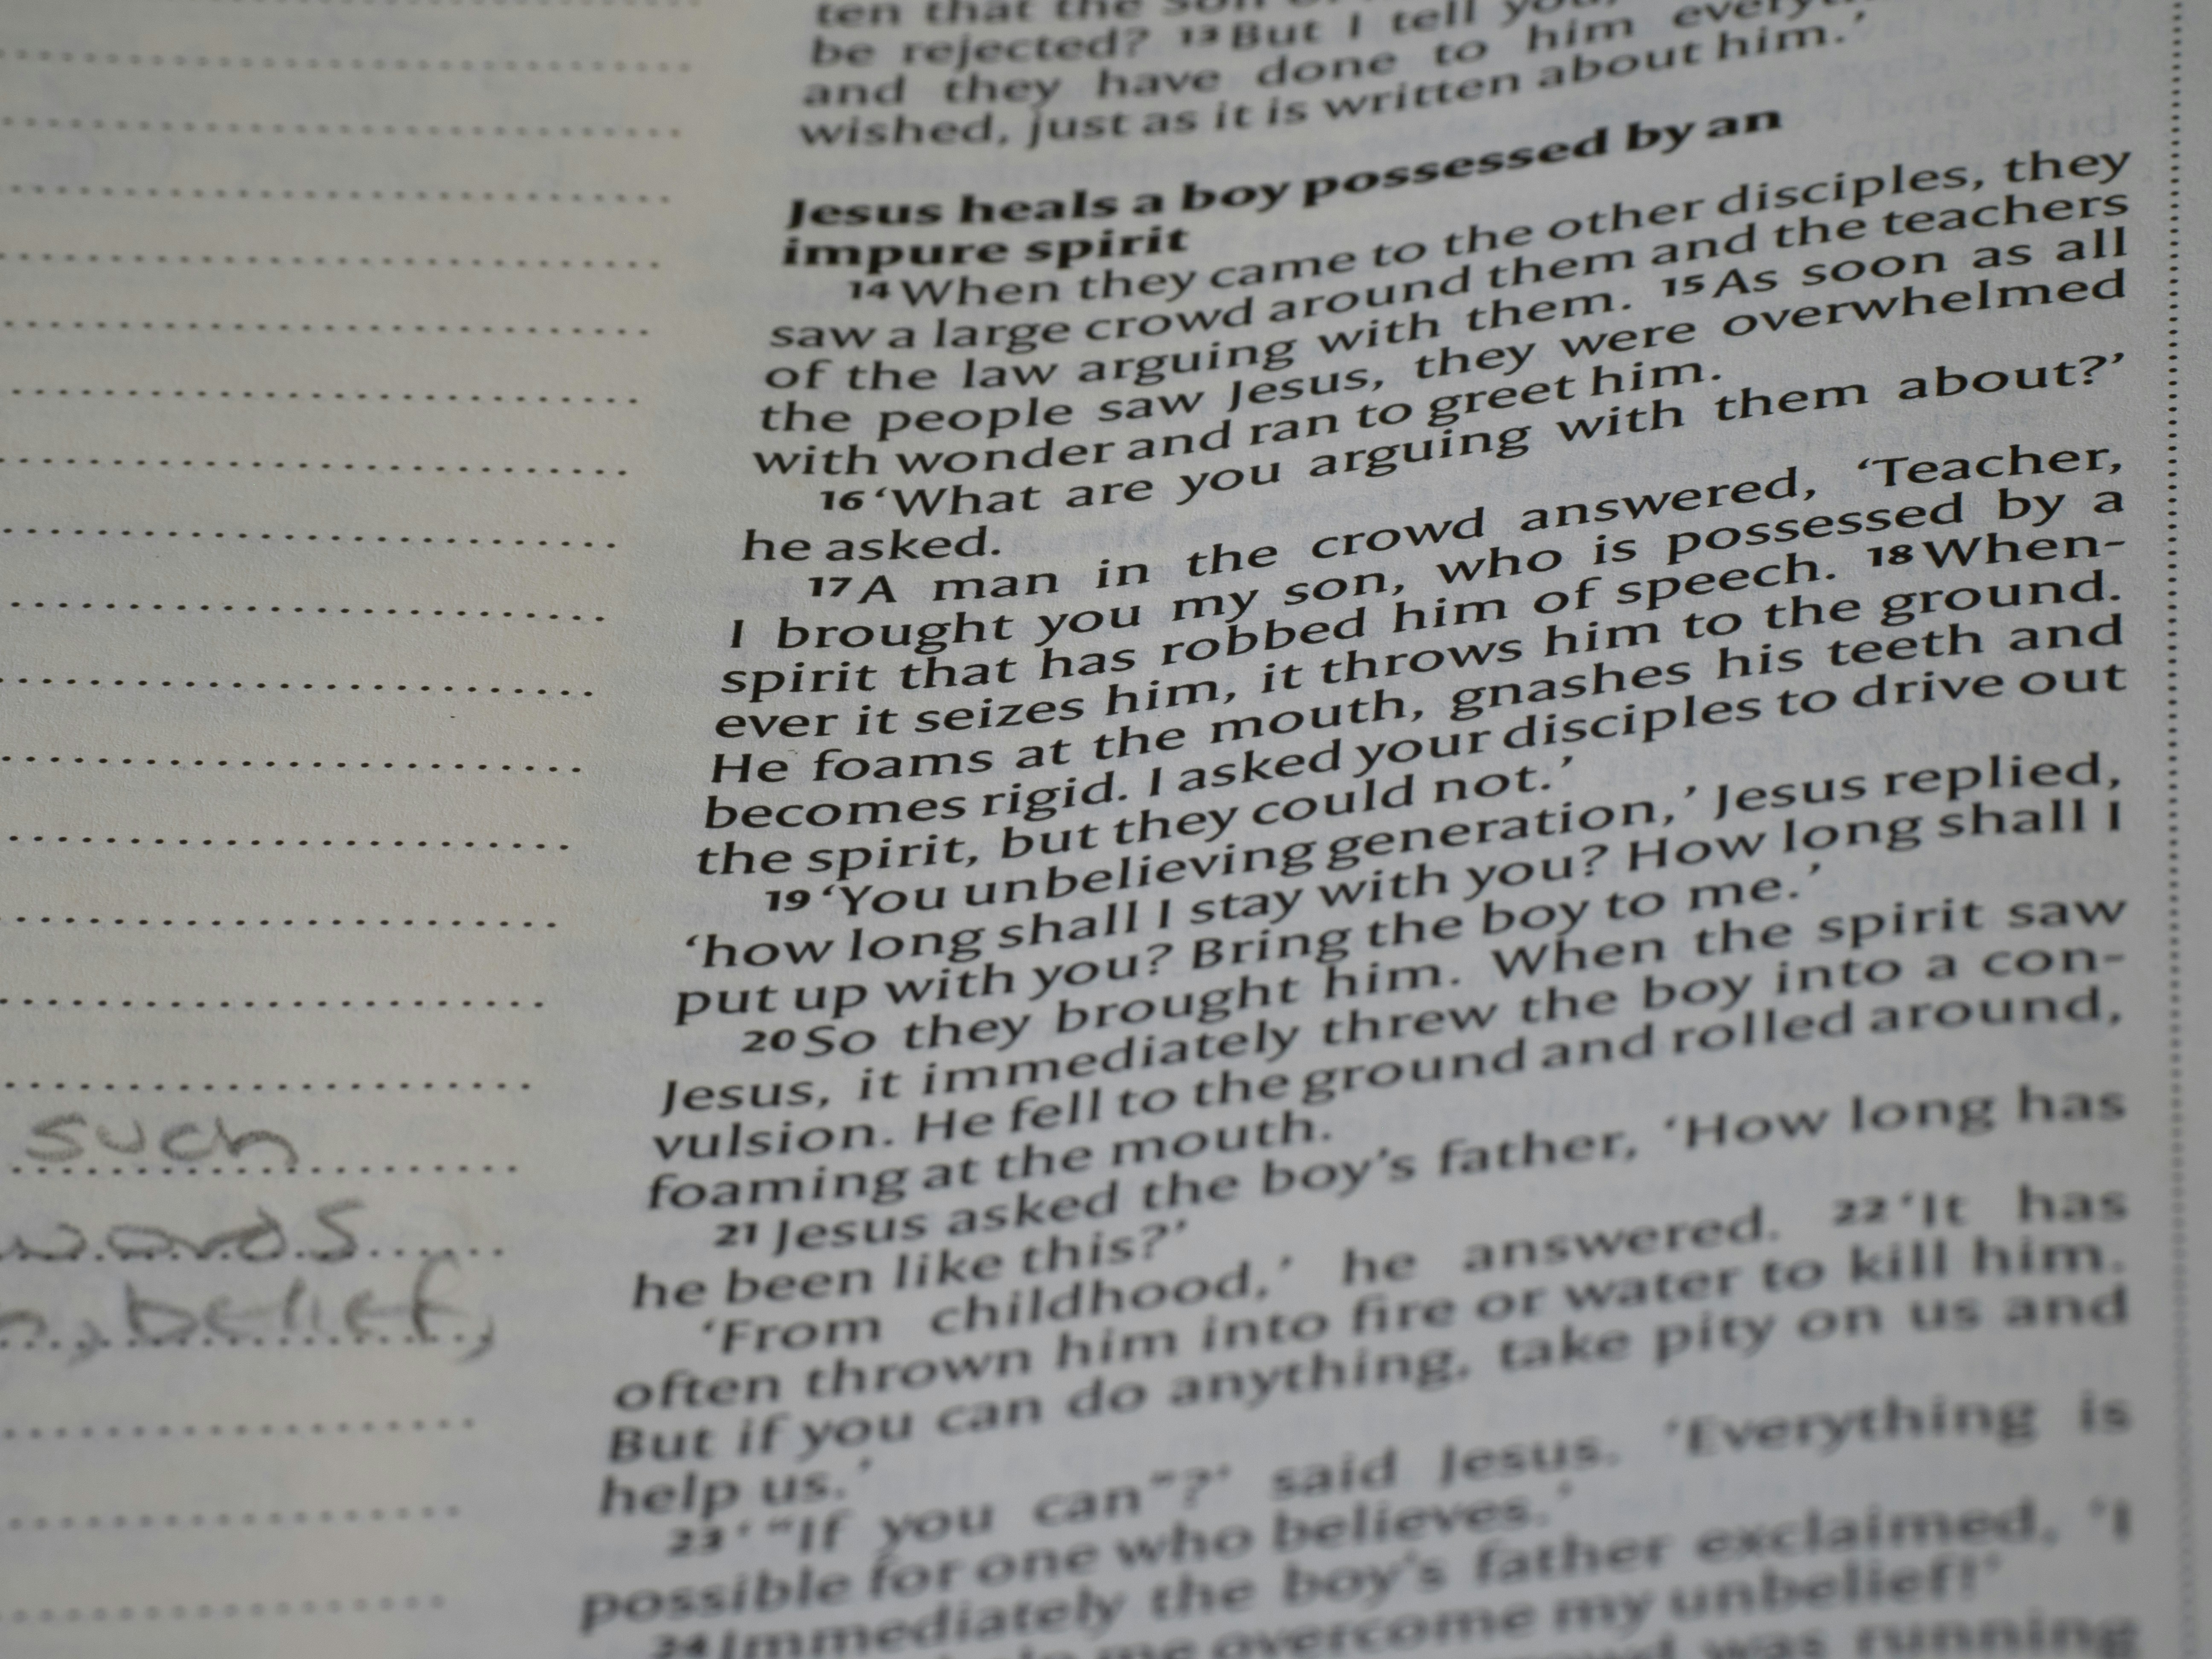 ten that the Son
be rejected? 13 But I tell you,
and they have done to him
wished, just as it is written about him.’
Jesus heals a boy possessed by an
impure spirit
14 When they came to the other disciples, they
saw a large crowd around them and the teachers
of the law arguing with them. 15 As soon as all
the people saw Jesus, they were overwhelmed
with wonder and ran to greet him.
16 ‘What are you arguing with them about?’
he asked.
17 A man in the crowd answered, ‘Teacher,
I brought you my son, who is possessed by a
spirit that has robbed him of speech. 18 When-
ever it seizes him, it throws him to the ground.
He foams at the mouth, gnashes his teeth and
becomes rigid. I asked your disciples to drive out
the spirit, but they could not.’
19 ‘You unbelieving generation,’ Jesus replied,
‘how long shall I stay with you? How long shall I
put up with you? Bring the boy to me.’
20 So they brought him. When the spirit saw
Jesus, it immediately threw the boy into a con-
vulsion. He fell to the ground and rolled around,
foaming at the mouth.
21 Jesus asked the boy’s father, ‘How long has
he been like this?’
‘From childhood,’ he answered. 22 ‘It has
often thrown him into fire or water to kill him.
But if you can do anything, take pity on us and
help us.’
23 ‘ “If you can”?’ said Jesus. ‘Everything is
possible for one who believes.’
24 Immediately the boy’s father exclaimed, ‘I
help me overcome my unbelief!’
crowd was running
such
words
belief,